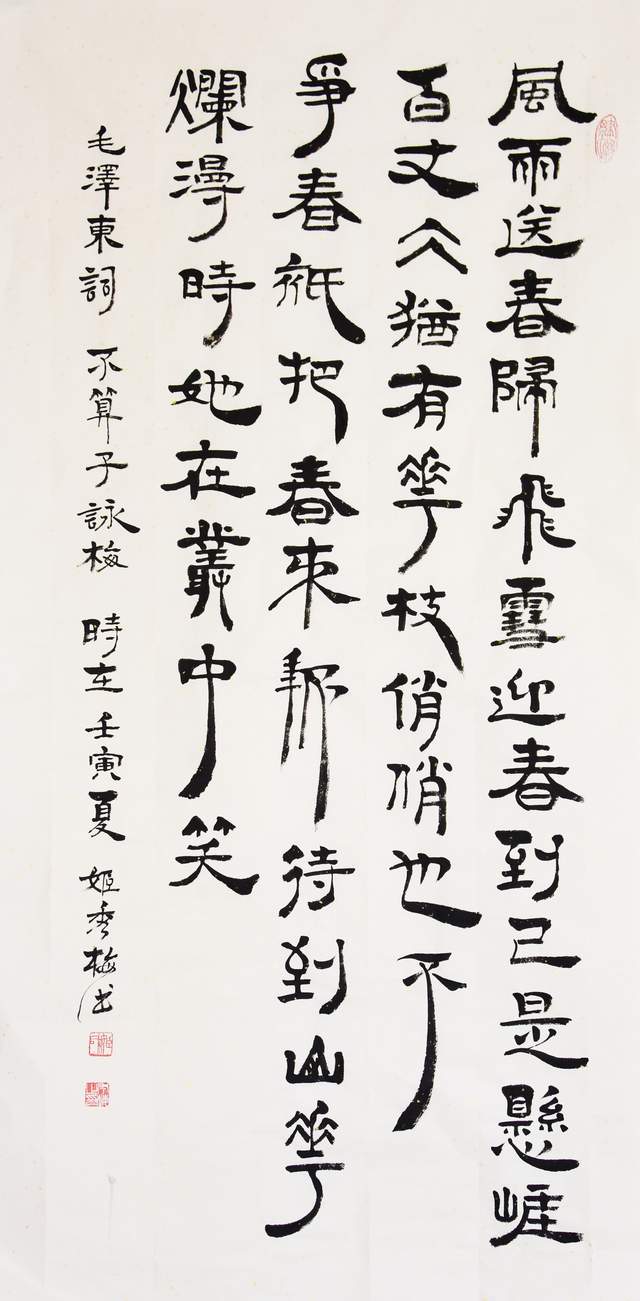 風雨送春歸飛雪迎春到已是懸崖
百丈仌猶有華枝俏俏也不
爭春祇把春來報待到山華
爛漫時她在叢中笑
毛澤東詞 不算子詠梅 時在壬寅夏 姬秀梅书